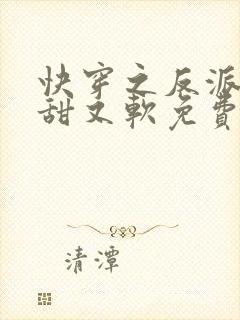 快穿之反派
甜又軟免費
清潭